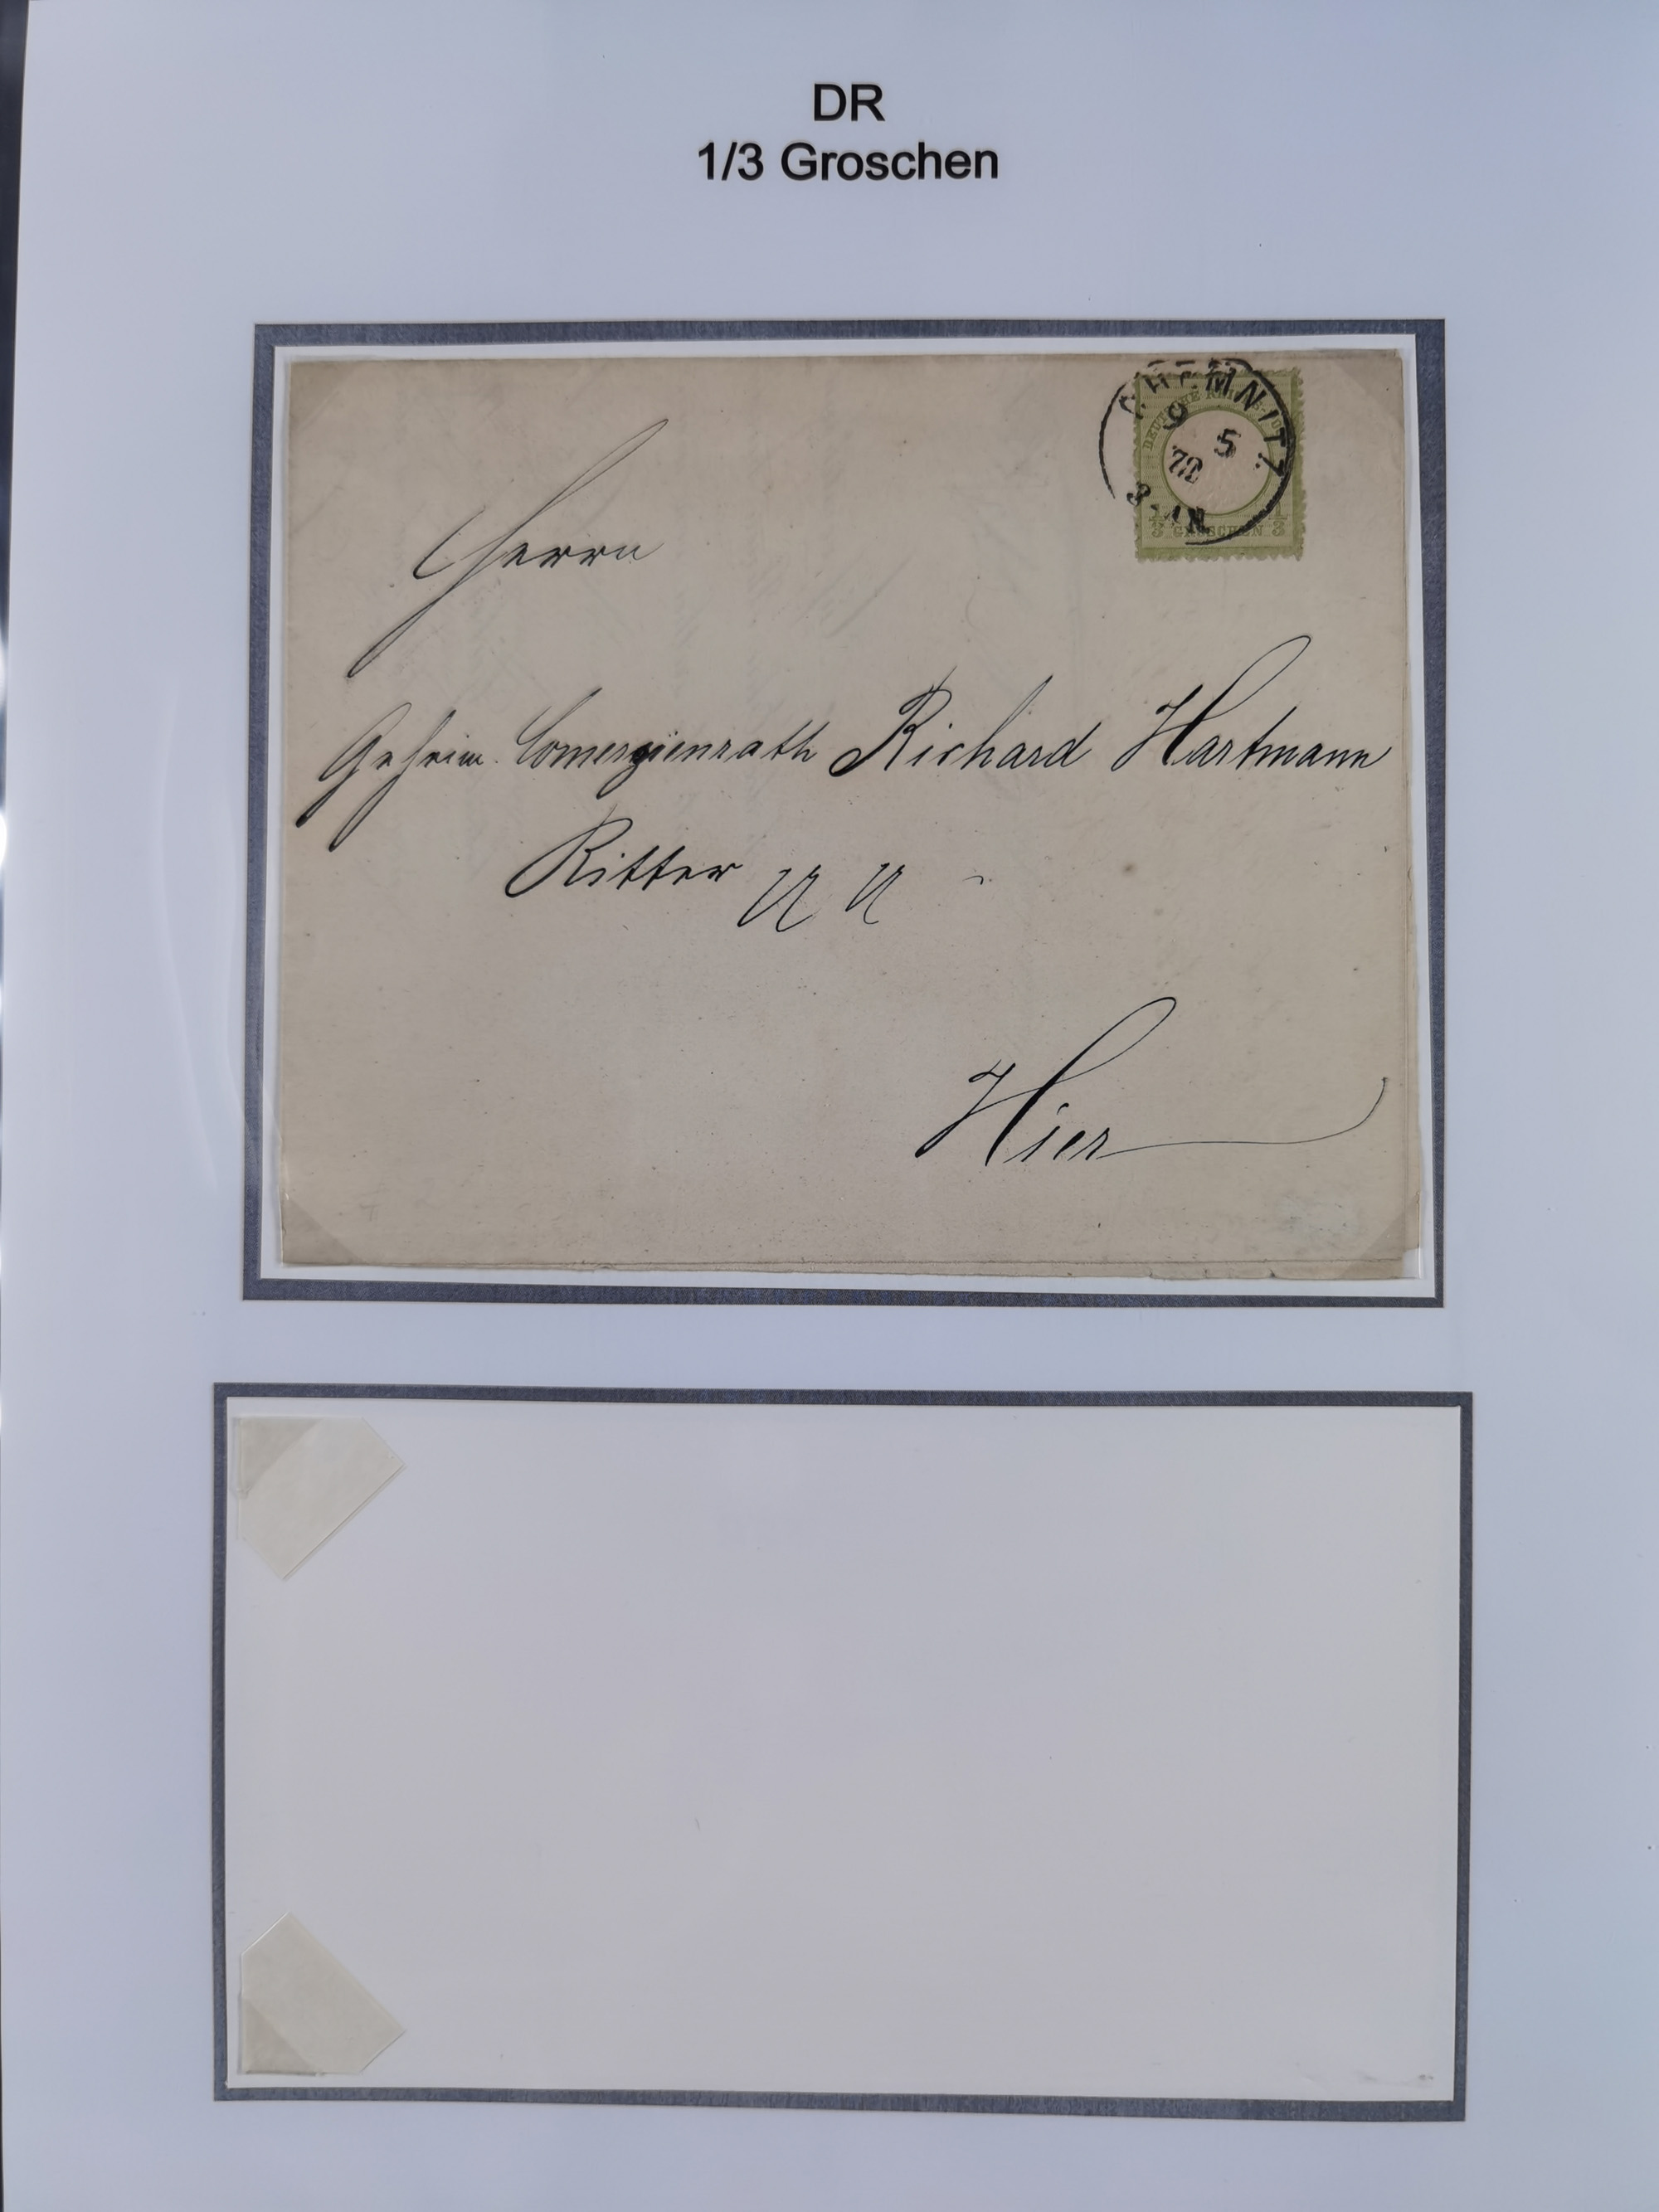 DR
1/3 Groschen
CHEMNITZ
9 5
72
DEUTSCHE REICHS-POST
1/3 GROSCHEN 1/3
Herrn
Geheim. Comerzienrath Richard Hartmann
Ritter
Hier